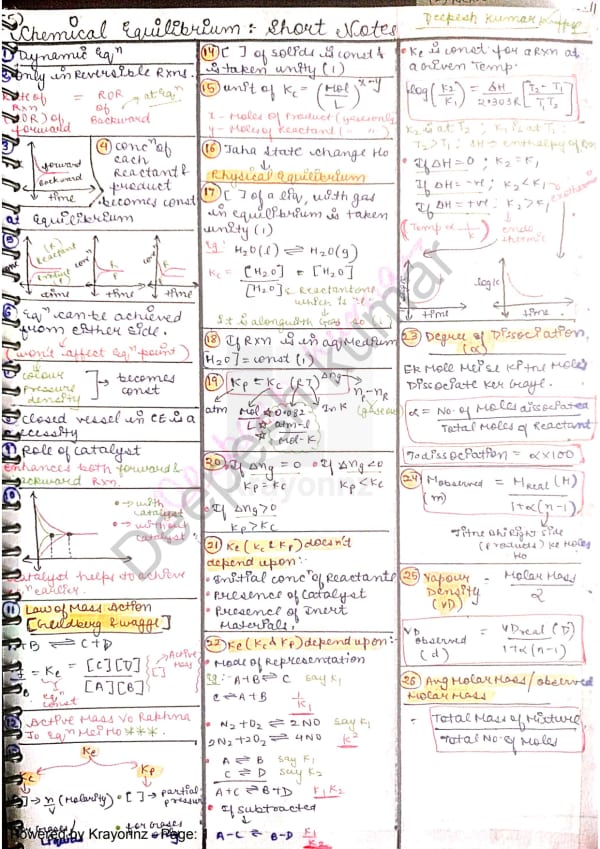 Chemical Equilibrium : Short Notes
Deepesh Kumar
① Dynamic Eqⁿ
only in Reversible Rxns.
Rate of Rxn (ROR) of forward = ROR of Backward at eqⁿ
forward
Backward
time
④ concⁿ of
each
Reactant &
product
becomes const
at Equilibrium
Reactant
time
time
time
⑥ Eqⁿ can be achieved
from either side.
(won't affect Eqⁿ point)
colour
pressure
density
→ becomes
const
closed vessel in CE is a
necessity
Role of Catalyst
Enhances both forward &
backward Rxn.
→ with
catalyst
→ without
catalyst
Catalyst helps to achieve
eqⁿ earlier.
⑪ Law of Mass Action
[Guldberg & waage]
A+B ⇌ C+D
= Kc = [C][D] / [A][B]
[ ] Active Mass
eqⁿ const
⑫ Active Mass Vo Rakhna
Jo Eqⁿ Mei Ho ***
Kc
Kp
[ ] → n/v (Molarity)
[ ] → partial pressure
for gases
⑭ [ ] of solids is const &
is taken unity (1)
⑮ unit of Kc = (Mol/L)^x-y
x - Moles of Product (gaseous only)
y - Moles of Reactant ( " " )
⑯ Jaha state change Ho
↓
Physical Equilibrium
⑰ [ ] of a liq, with gas
in equilibrium is taken
unity (1)
eg: H₂O(l) ⇌ H₂O(g)
Kc = [H₂O] / [H₂O] = [H₂O]
⑱ If Rxn is in aq Medium
[H₂O] = const (1)
⑲ Kp = Kc (RT)^Δng
n_P - n_R
(gaseous)
atm
Mol/L
0.082
atm-L/mol-K
In K
⑳ If Δng = 0
Kp = Kc
• If Δng < 0
Kp < Kc
• If Δng > 0
Kp > Kc
㉑ Ke (Kc & Kp) doesn't
depend upon:-
• Initial concⁿ of Reactants
• Presence of Catalyst
• Presence of Inert
Materials,
㉒ Ke (Kc & Kp) depend upon:-
• Mode of Representation
eg:- A+B ⇌ C say K₁
C ⇌ A+B 1/K₁
• N₂+O₂ ⇌ 2NO say K₁
2N₂+2O₂ ⇌ 4NO K²
• A ⇌ B say K₁
C ⇌ D say K₂
A+C ⇌ B+D K₁K₂
• If subtracted
A-C ⇌ B-D K₁/K₂
• Ke is const for a Rxn at
a Given Temp.
log(K₂/K₁) = ΔH/2.303R [T₂-T₁/T₁T₂]
K₂ is at T₂ ; K₁ is at T₁
T₂>T₁ ; ΔH → enthalpy of Rxn
• If ΔH=0 ; K₂=K₁
If ΔH=-ve ; K₂<K₁ → exothermic
If ΔH=+ve ; K₂>K₁
endothermic
(Temp ∝ 1/K)
time
logK
time
㉓ Degree of Dissociation
(α)
Ek Mole Mei se Kitne Moles
Dissociate Ker Gaye.
α = No. of Moles dissociated / Total Moles of Reactant
% dissociation = α×100
㉔ Mobserved (m) = Mreal (M) / 1+α(n-1)
Jitne Bhi Right side
(products) ke Moles
Ho
㉕ Vapour Density (VD) = Molar Mass / 2
VD observed (d) = VDreal (D) / 1+α(n-1)
㉖ Avg Molar Mass / observed
Molar Mass
= Total Mass of Mixture / Total No. of Moles
Deepesh Kumar
Krayonnz
Powered by Krayonnz - Page: 1